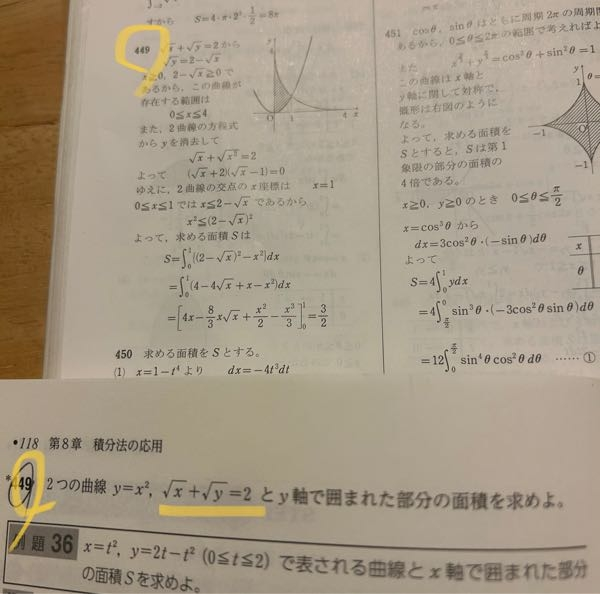 すから S=4・π・2²・1/2=8π
449 √x+√y=2 から
√y=2−√x
x≧0, 2−√x≧0 で
あるから, この曲線が
存在する範囲は
0≦x≦4
また, 2曲線の方程式
から y を消去して
√x+√x²=2
よって (√x+2)(√x−1)=0
ゆえに, 2曲線の交点の x 座標は x=1
0≦x≦1 では x≦2−√x であるから
x²≦(2−√x)²
よって, 求める面積 S は
S=∫₀¹{(2−√x)²−x²}dx
=∫₀¹(4−4√x+x−x²)dx
=[4x−8/3x√x+x²/2−x³/3]₀¹=3/2
y
4
O 1 4 x
450 求める面積を S とする。
(1) x=1−t⁴ より dx=−4t³dt
451 cosθ, sinθ はともに周期 2π の
あるから, 0≦θ≦2π の範囲で考えれば
また x^(2/3)+y^(2/3)=cos²θ+sin²θ=1
この曲線は x 軸と
y 軸に関して対称で,
概形は右図のように
なる。
よって, 求める面積を
S とすると, S は第1
象限の部分の面積の
4倍である。
y
1
θ=
−1
O
−1
x≧0, y≧0 のとき 0≦θ≦π/2
x=cos³θ から
dx=3cos²θ・(−sinθ)dθ
よって
x
θ
S=4∫₀¹ydx
=4∫_(π/2)^0 sin³θ・(−3cos²θ sinθ)dθ
=12∫₀^(π/2) sin⁴θ cos²θ dθ ……①
•118 第8章 積分法の応用
*449 2つの曲線 y=x², √x+√y=2 と y 軸で囲まれた部分の面積を求めよ。
例題 36 x=t², y=2t−t² (0≦t≦2) で表される曲線と x 軸で囲まれた部分
の面積 S を求めよ。